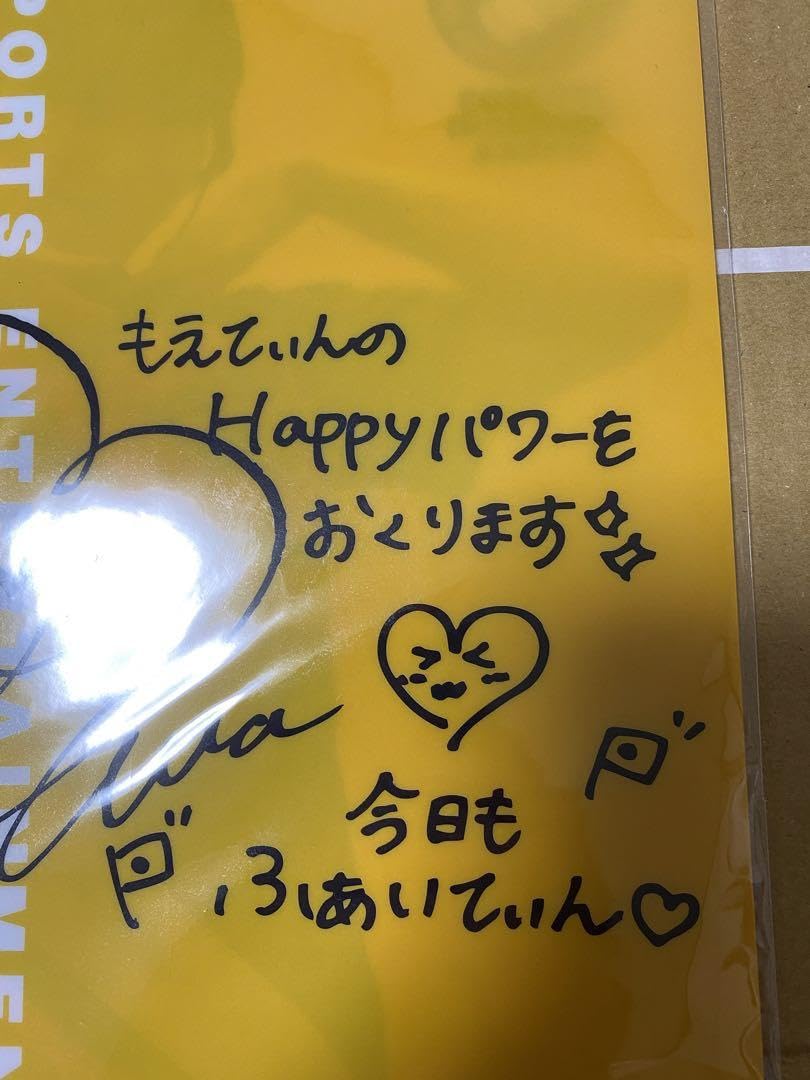 PORTS ENTERTAINMEN
もえてぃんの
Happyパワーを
おくります
今日も
ふぁいてぃん♡